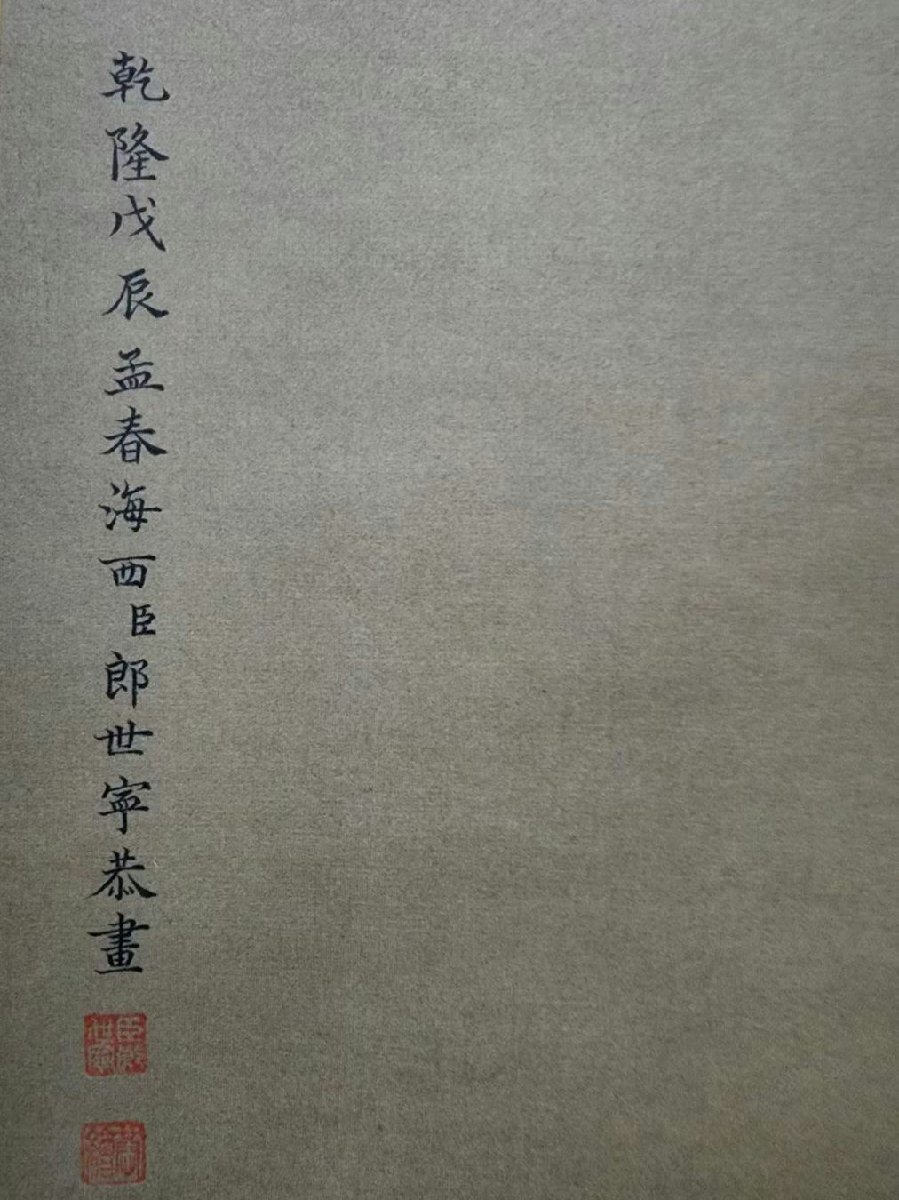 乾隆戊辰孟春海西臣郎世寧恭畫
臣郎世寧